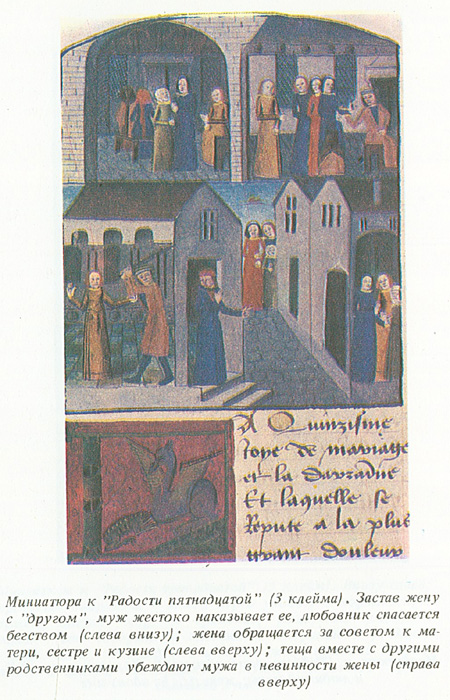 A Quinzisme
Joye de mariage
et la derraine
Et laquelle se
Repute a la plus
grant douleur
Миниатюра к "Радости пятнадцатой" (3 клейма). Застав жену
с "другом", муж жестоко наказывает ее, любовник спасается
бегством (слева внизу); жена обращается за советом к ма-
тери, сестре и кузине (слева вверху); теща вместе с другими
родственниками убеждают мужа в невинности жены (справа
вверху)